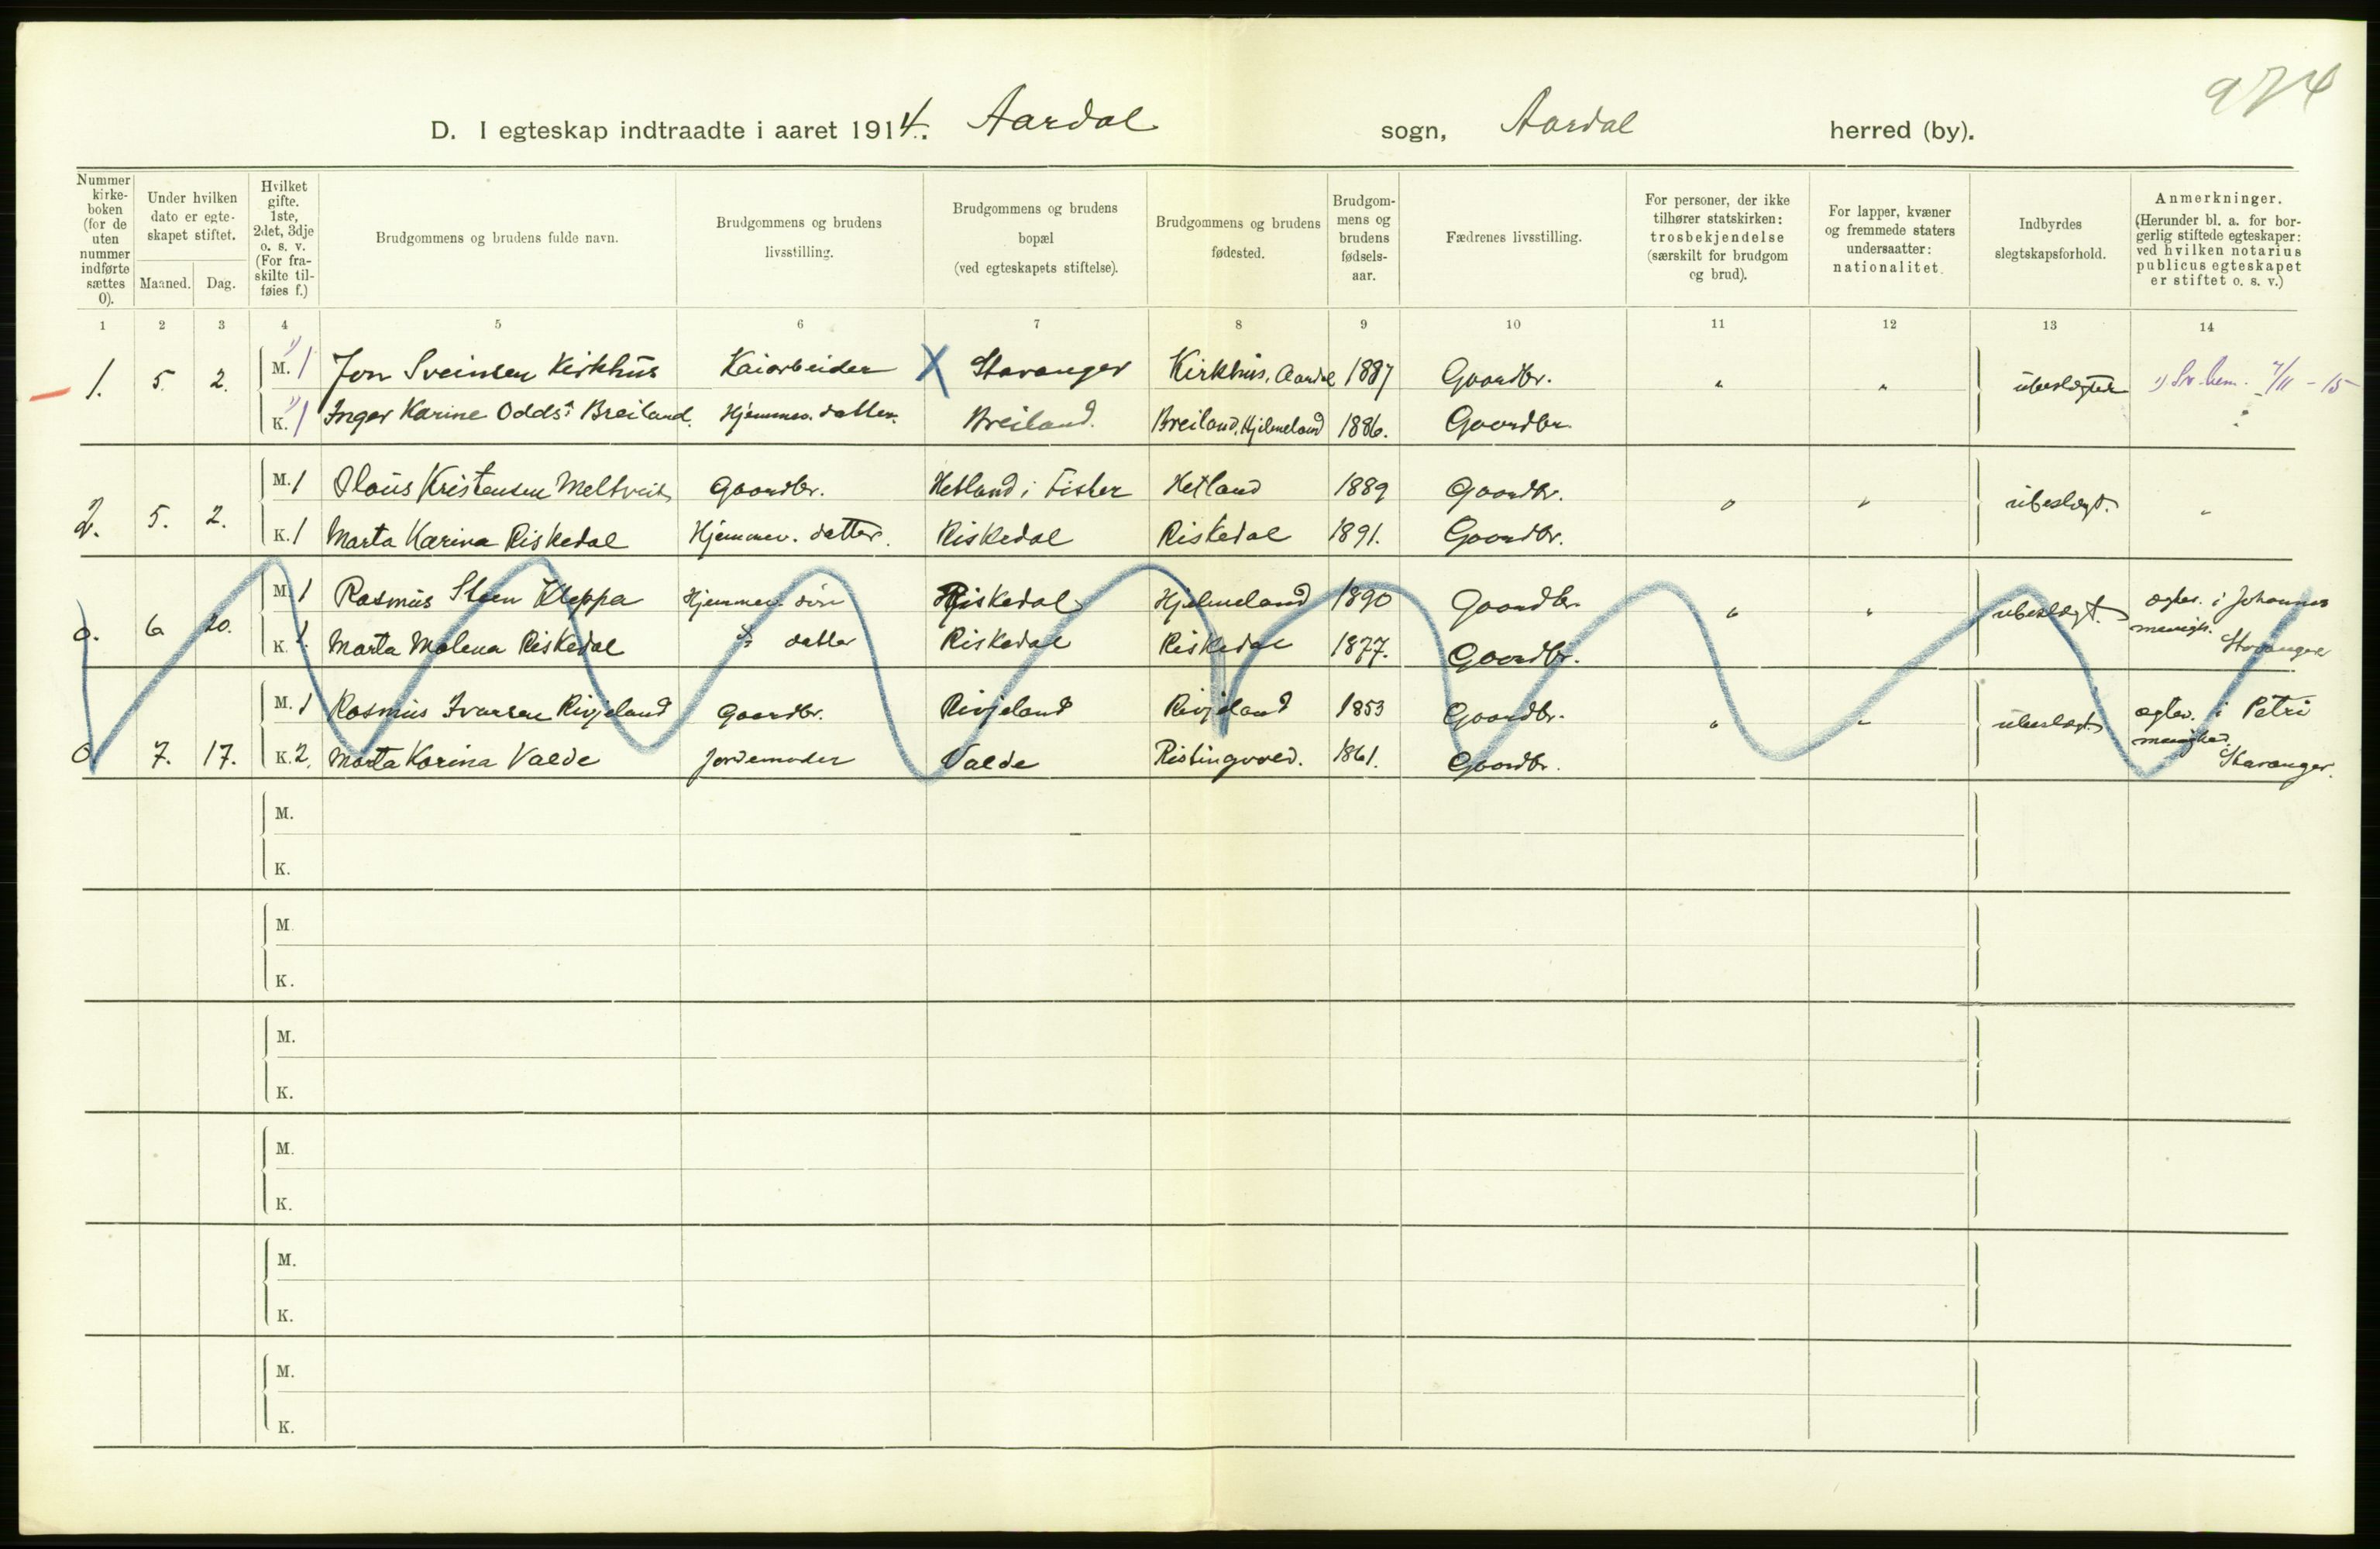 974
D. I egteskap indtraadte i aaret 1914. Aardal sogn, Aardal herred (by).
Nummer kirkeboken (for de uten nummer indførte sættes 0).
Under hvilken dato er egteskapet stiftet.
Maaned. Dag.
Hvilket gifte. 1ste, 2det, 3dje o. s. v. (For fraskilte tilføies f.)
Brudgommens og brudens fulde navn.
Brudgommens og brudens livsstilling.
Brudgommens og brudens bopæl (ved egteskapets stiftelse).
Brudgommens og brudens fødested.
Brudgommens og brudens fødselsaar.
Fædrenes livsstilling.
For personer, der ikke tilhører statskirken: trosbekjendelse (særskilt for brudgom og brud).
For lapper, kvæner og fremmede staters undersaatter: nationalitet.
Indbyrdes slegtskapsforhold.
Anmerkninger. (Herunder bl. a. for borgerlig stiftede egteskaper: ved hvilken notarius publicus egteskapet er stiftet o. s. v.)
1 2 3 4 5 6 7 8 9 10 11 12 13 14
1. 5. 2. M. 1) 1 Jon Sveinsen Kirkhus Kaiarbeider X Stavanger Kirkhus, Aardal 1887 Gaardbr. " " ubeslegtet 1) 7/11 - 15
K. 1) 1 Inger Karine Odds. Breiland. Hjemmev. datter. Breiland. Breiland, Hjelmeland 1886. Gaardbr.
2. 5. 2. M. 1 Olaus Kristensen Meltveit Gaardbr. Hetland i Fister Hetland 1889 Gaardbr. " " ubeslegt. "
K. 1 Marta Karina Riskedal Hjemmev. datter. Riskedal Riskedal 1891. Gaardbr.
0. 6. 20. M. 1 Rasmus Steen Kleppa Hjemmev. søn Riskedal Hjelmeland 1890 Gaardbr. " " ubeslegt. egtev. i Johannes menigh. Stavanger
K. 1. Marta Malena Riskedal " datter Riskedal Riskedal 1877. Gaardbr.
0 7. 17. M. 1 Rasmus Ivarsen Rivjeland Gaardbr. Rivjeland Rivjeland 1853 Gaardbr. " " ubeslegt. egtev. i Petri menighed i Stavanger.
K. 2. Marta Karina Valde Jordemoder Valde Ristingvoed. 1861. Gaardbr.
M.
K.
M.
K.
M.
K.
M.
K.
M.
K.
M.
K.